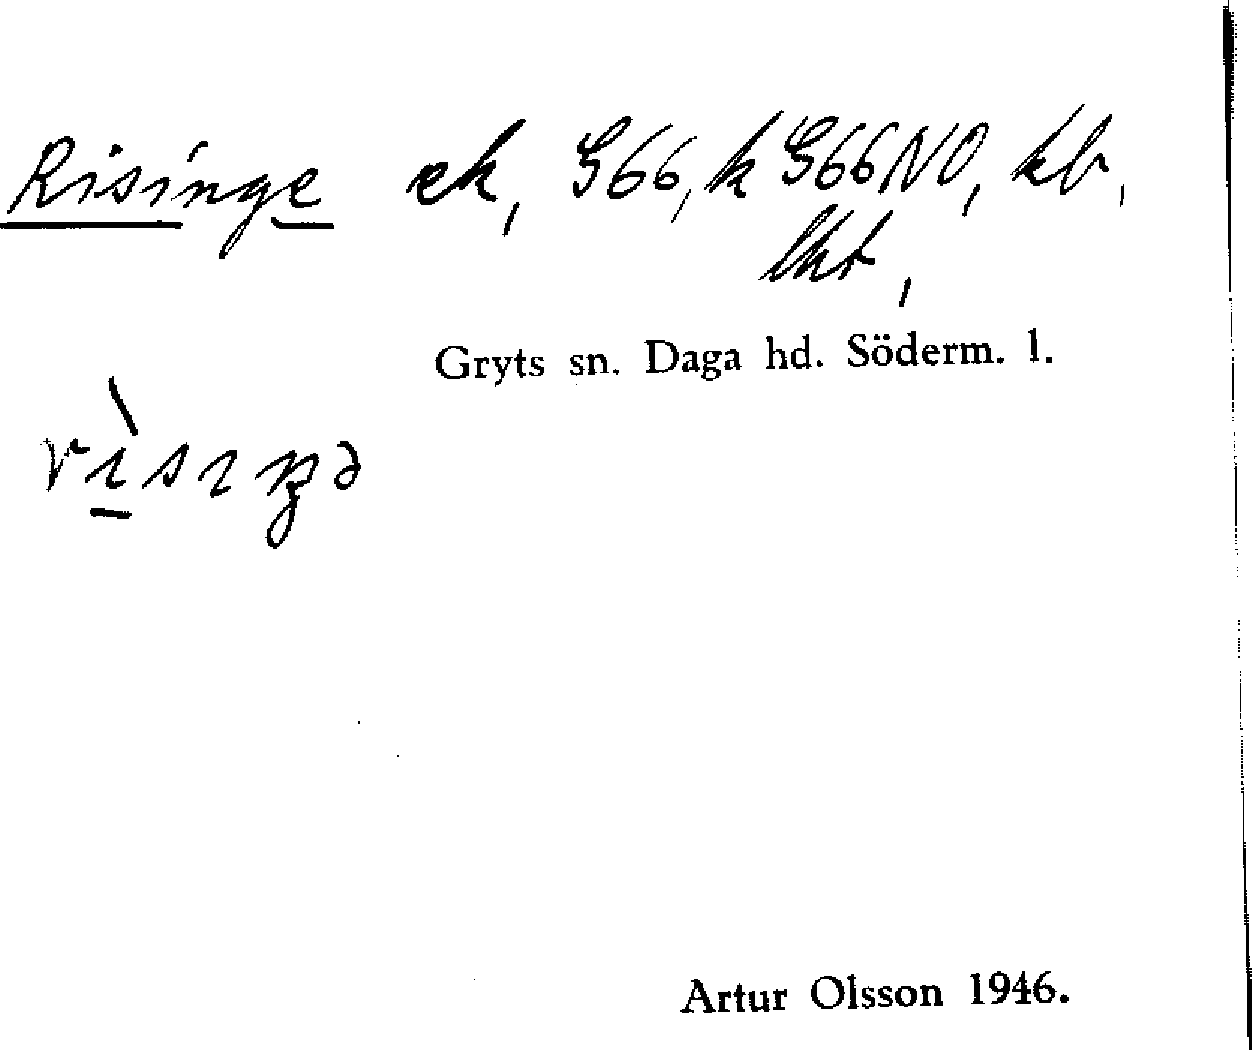 Risinge ek, G66, k G66NO, kb,
lht,
Gryts sn. Daga hd. Söderm. l.
rìsıŋə
Artur Olsson 1946.